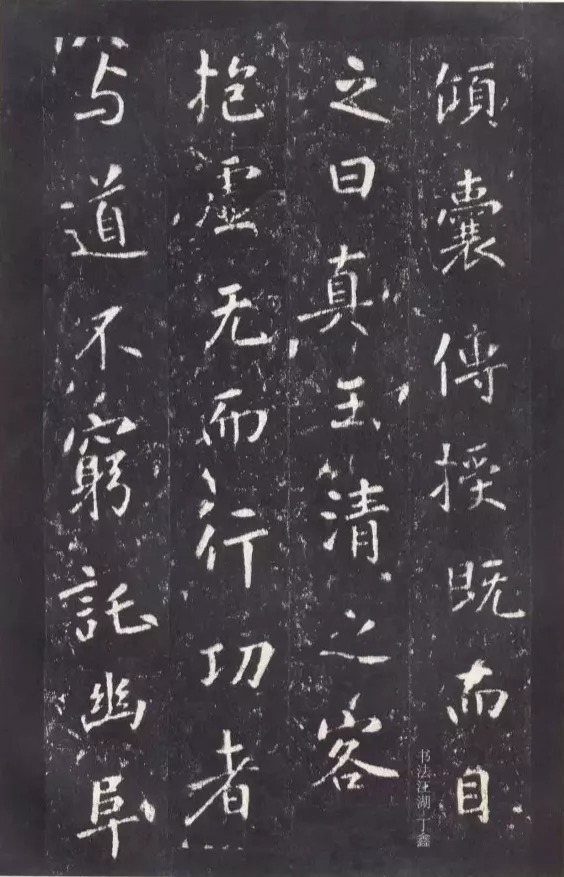 傾囊傳授既而目
之曰真玉清之客
抱虛无而行功者
与道不窮託幽阜
书法江湖丁鑫